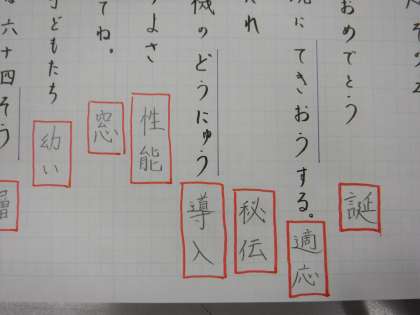 おめでとう
誕
にてきおうする。
適応
秘伝
機のどうにゅう
導入
よさ
性能
てね。
窓
どもたち
幼い
六十四そう